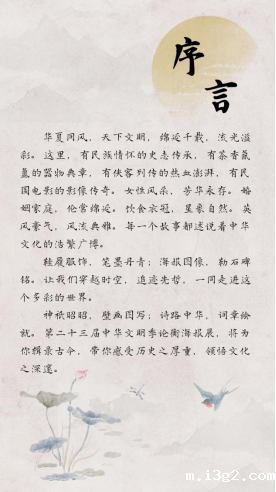 序
言
华夏同风，天下文明，绵延千载，流光溢
彩。这里，有民族情怀的史志传承，有茶香氤
氲的器物典章，有侠客列传的热血澎湃，有民
国电影的影像传奇。女性风采，芳华永存。婚
姻家庭，伦常绵延。饮食衣冠，星象自然。英
风豪气，风流典雅。每一个故事都述说着中华
文化的浩繁广博。
鞋履服饰，笔墨丹青；海报图像，勒石碑
铭。让我们穿越时空，追迹先哲，一同走进这
个多彩的世界。
神祇昭昭，壁画图写；诗路中华，词章绘
就。第二十三届中华文明季论衡海报展，将为
你辑录古今，带你感受历史之厚重，领悟文化
之深邃。
m.i3g2.com